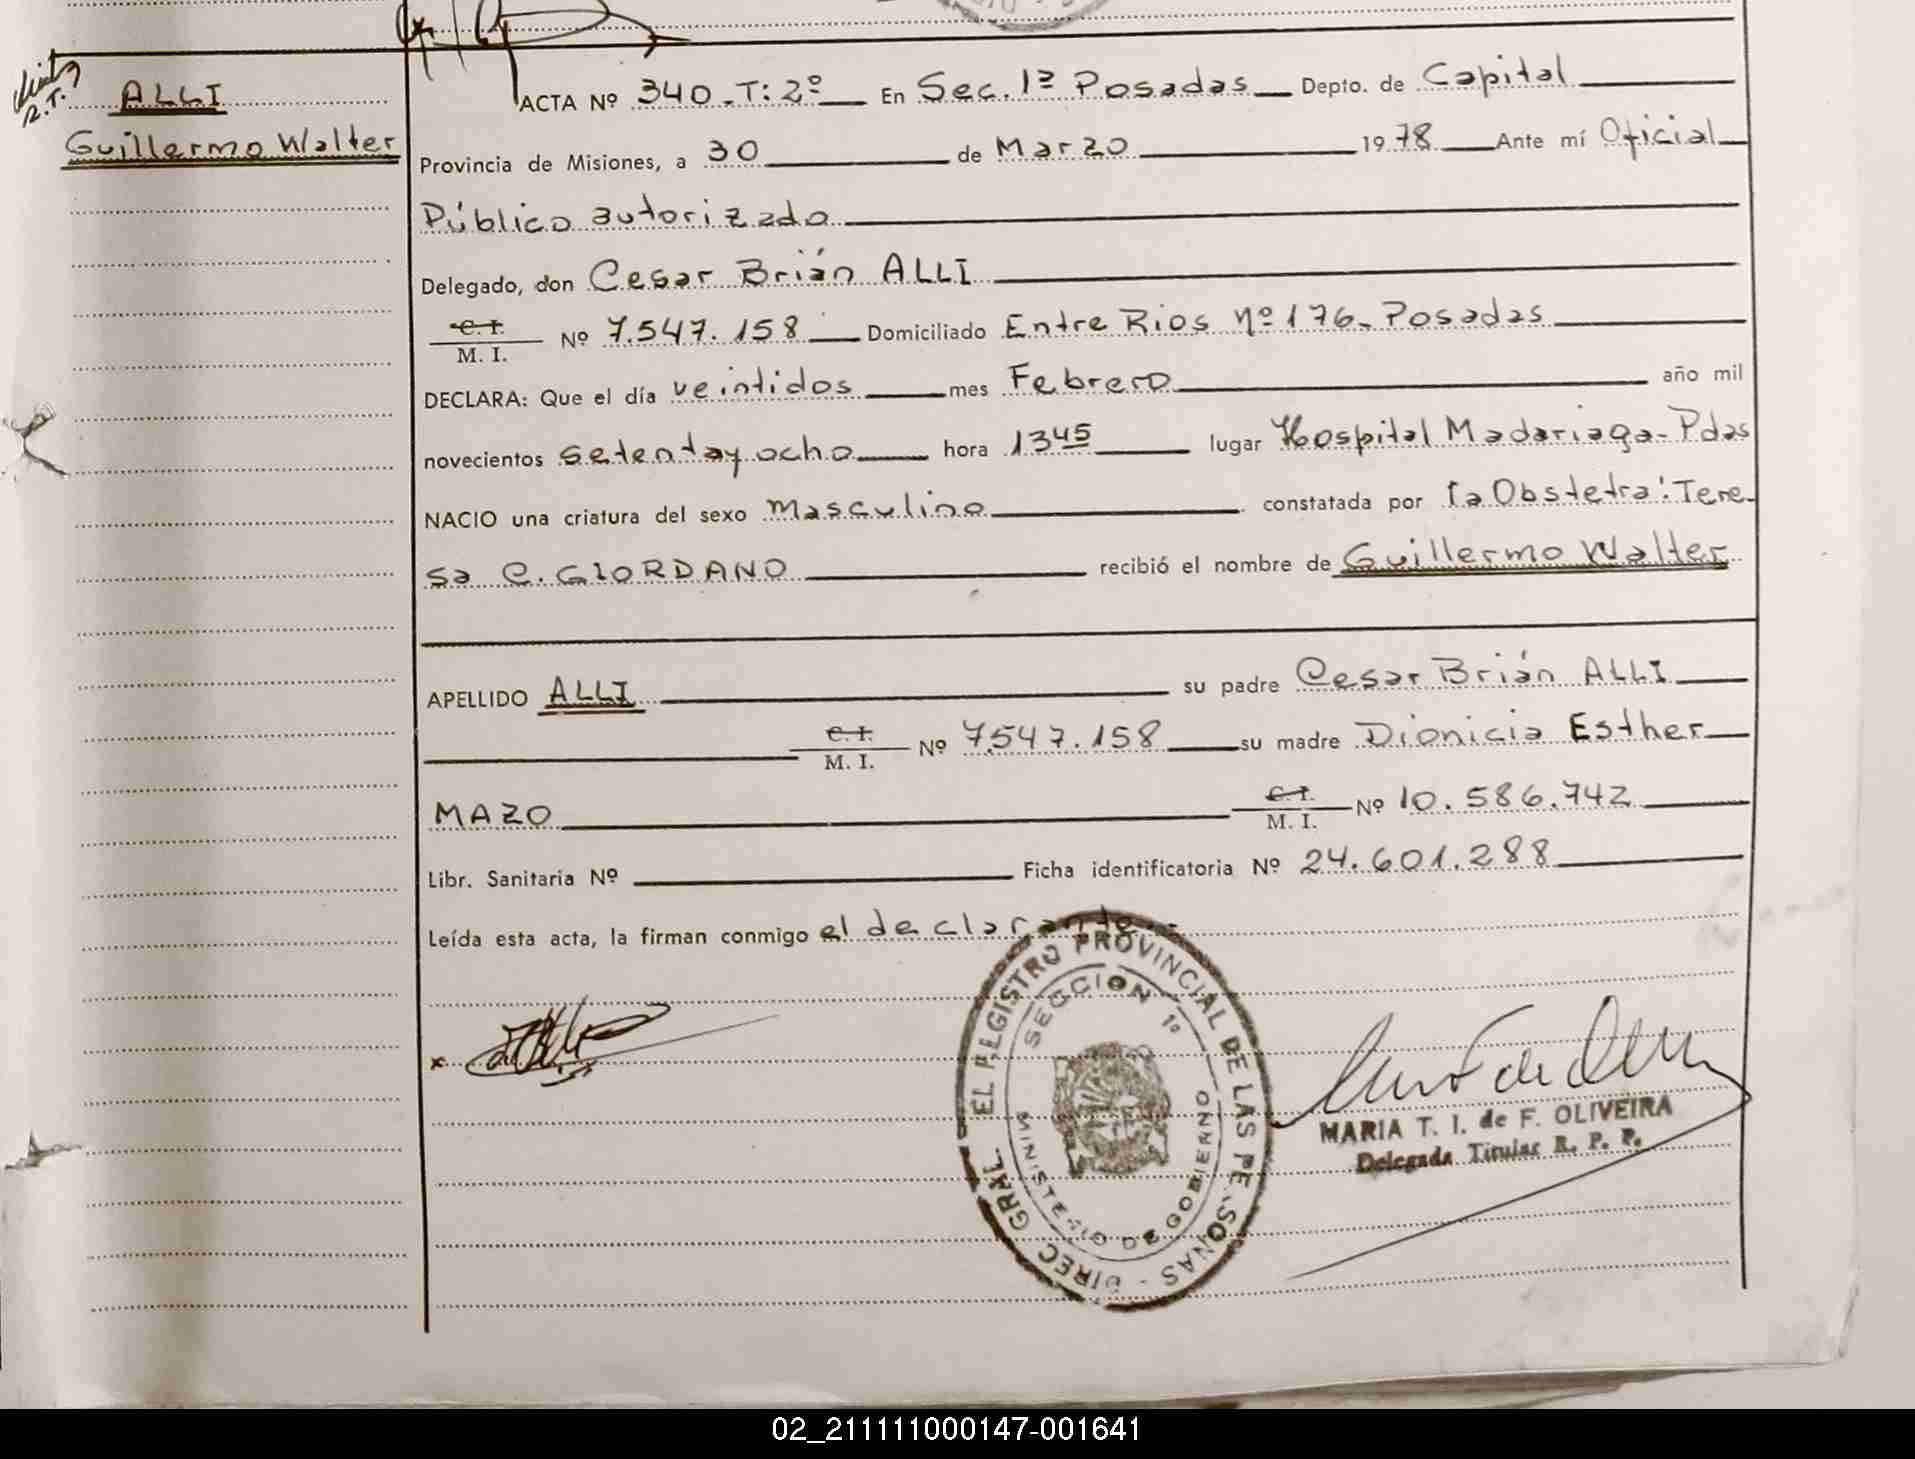 ALLI
Guillermo Walter
ACTA Nº 340. T: 2º En Sec. 1ª Posadas Depto. de Capital
Provincia de Misiones, a 30 de Marzo 1978 Ante mí Oficial
Público autorizado
Delegado, don Cesar Brián ALLI
C. I.
M. I. Nº 7.547.158 Domiciliado Entre Rios nº 176. Posadas
DECLARA: Que el día veintidos mes Febrero año mil
novecientos setenta y ocho hora 13 45 lugar Hospital Madariaga - Pdas
NACIO una criatura del sexo masculino constatada por la Obstetra: Tere-
sa C. GIORDANO recibió el nombre de Guillermo Walter
APELLIDO ALLI su padre Cesar Brián ALLI
C. I.
M. I. Nº 7.547.158 su madre Dionicia Esther
MAZO C. I.
M. I. Nº 10.586.742
Libr. Sanitaria Nº Ficha identificatoria Nº 24.601.288
Leída esta acta, la firman conmigo el declarante -
x
DIREC GRAL. EL REGISTRO PROVINCIAL DE LAS PE SONAS -
SECCION 1ª
MINISTERIO DE GOBIERNO
MARIA T. I. de F. OLIVEIRA
Delegada Titular R. P. P.
02_211111000147-001641